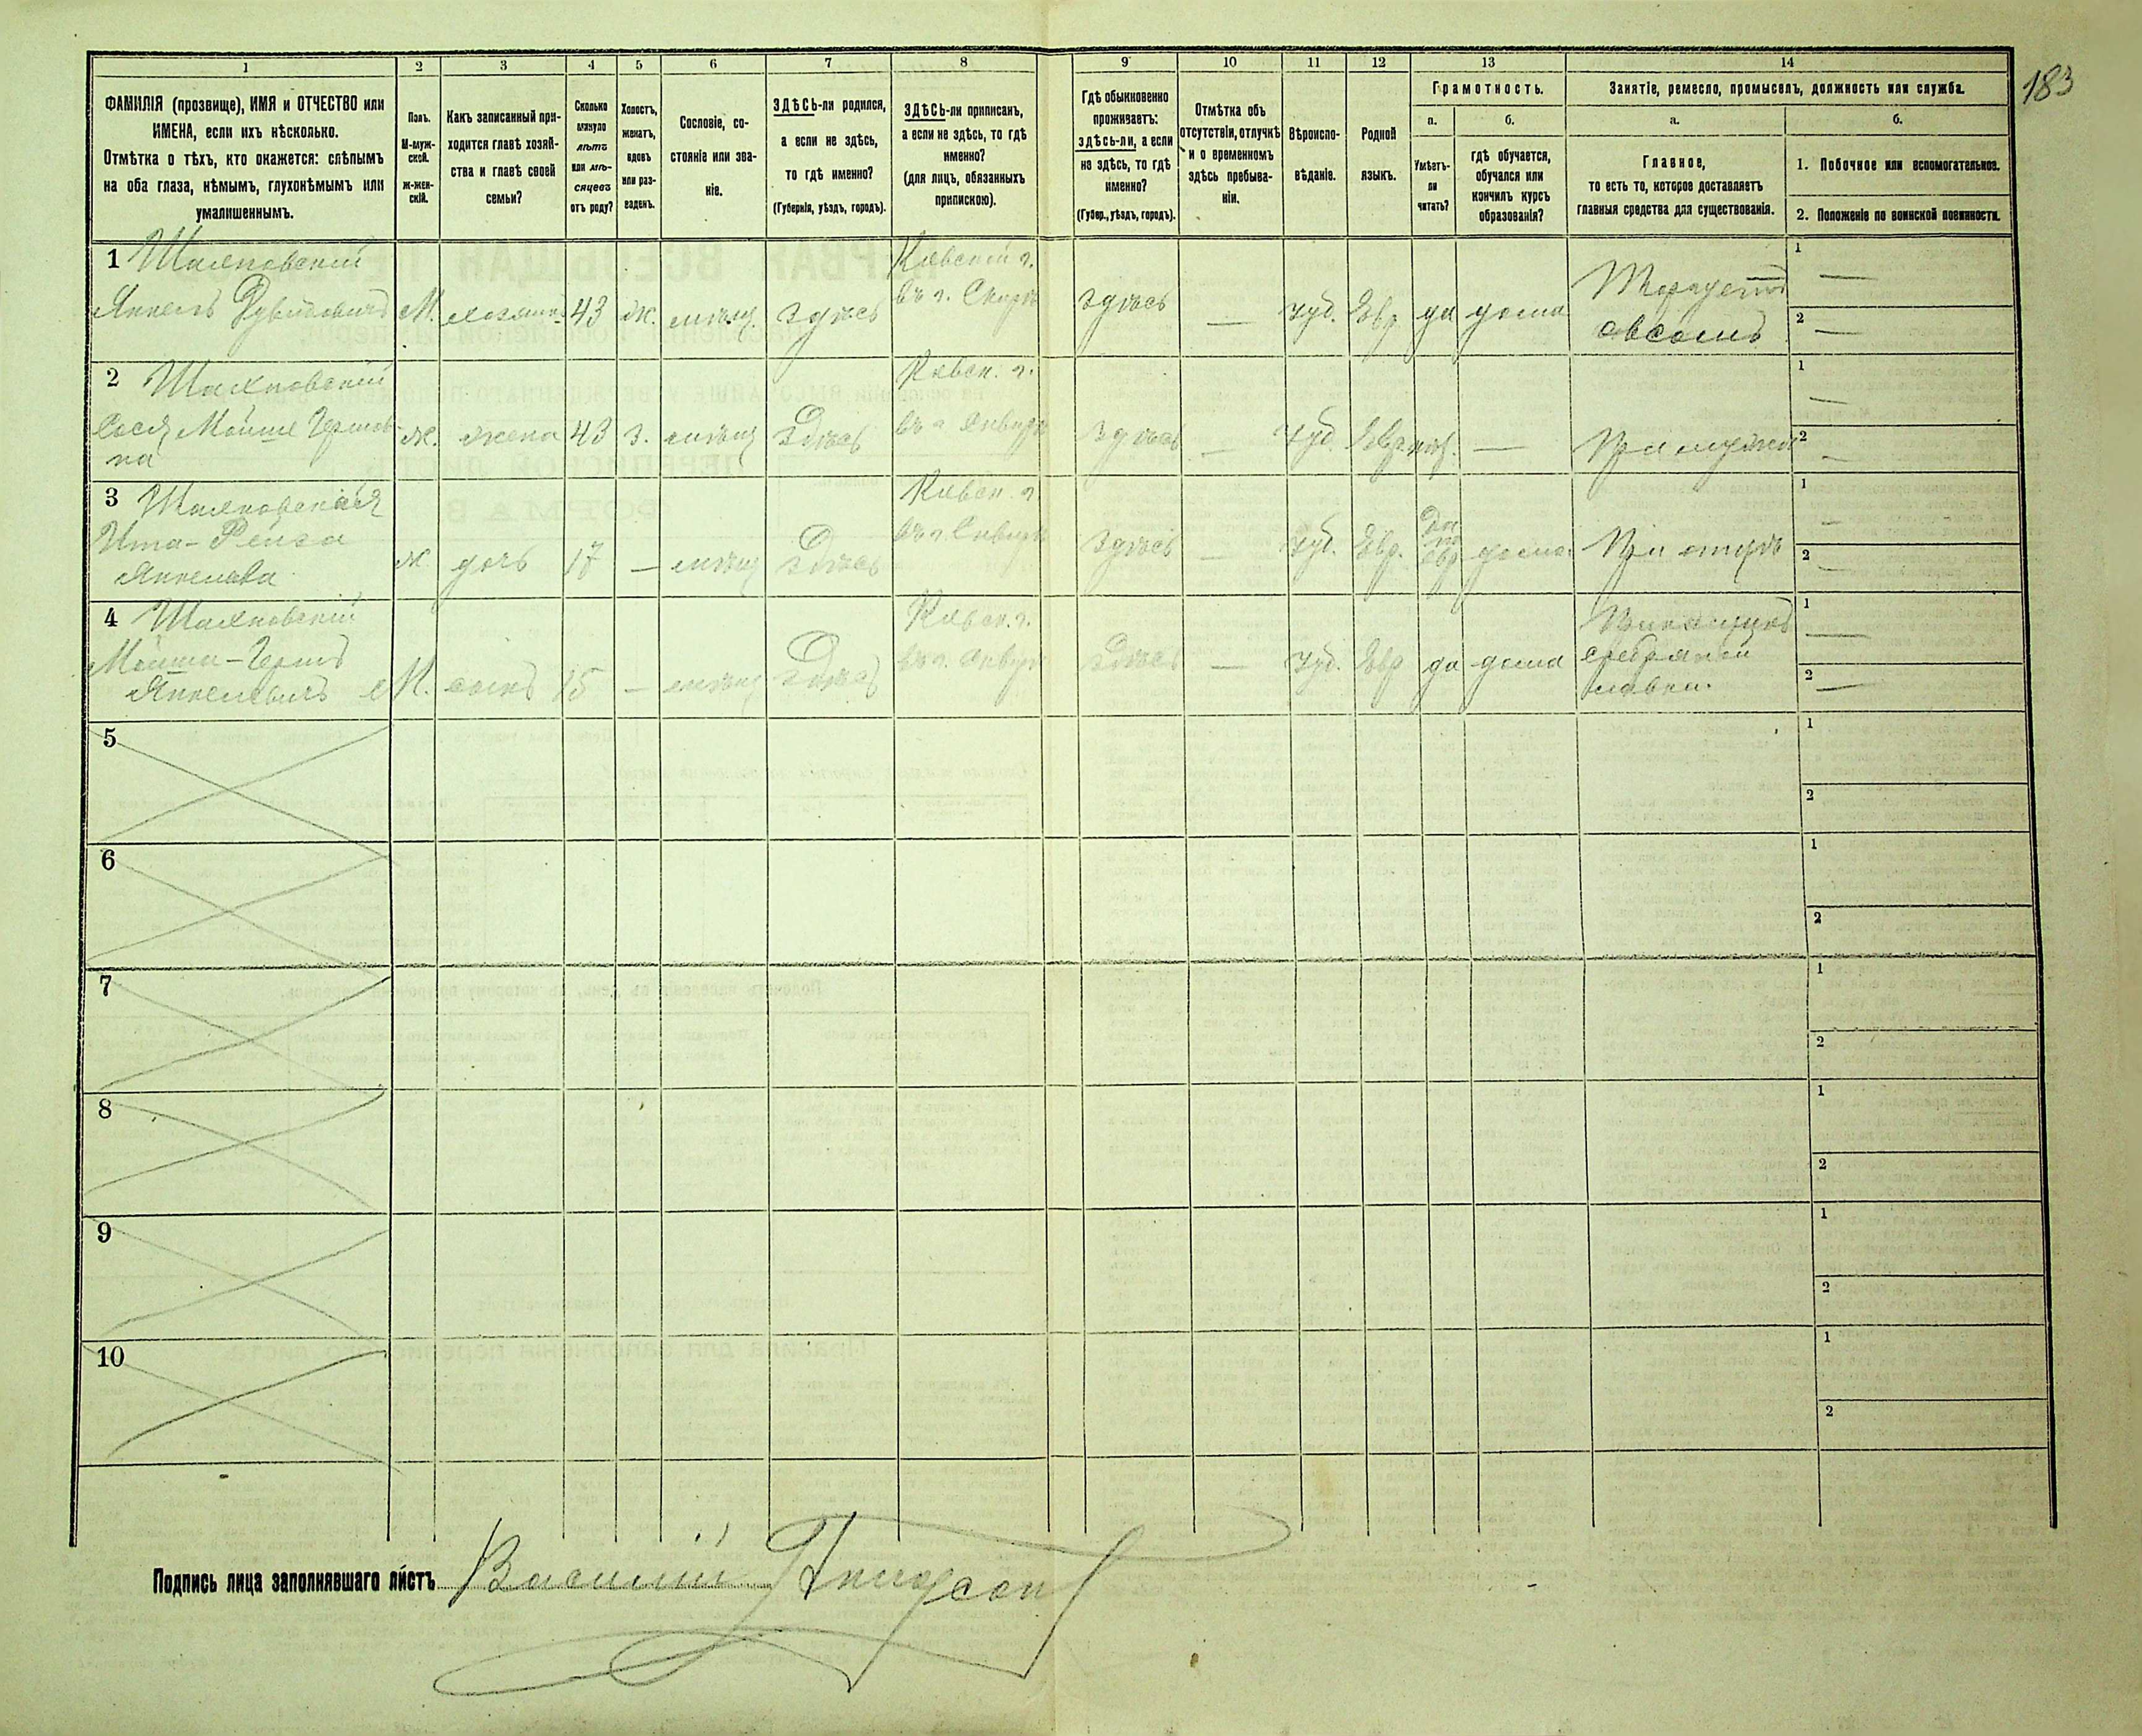 183
1
2
3
4
5
6
7
8
9
10
11
12
13
14
ФАМИЛІЯ (прозвище), ИМЯ и ОТЧЕСТВО или
ИМЕНА, если ихъ нѣсколько.
Отмѣтка о тѣхъ, кто окажется: слѣпымъ
на оба глаза, нѣмымъ, глухонѣмымъ или
умалишеннымъ.
Полъ.
М-муж-
ской.
ж-жен-
скій.
Какъ записанный при-
ходится главѣ хозяй-
ства и главѣ своей
семьи?
Сколько
минуло
лѣтъ
или мѣ-
сяцевъ
отъ роду?
Холостъ,
женатъ,
вдовъ
или раз-
веденъ.
Сословіе, со-
стояніе или зва-
ніе.
ЗДѢСЬ-ли родился,
а если не здѣсь,
то гдѣ именно?
(Губернія, уѣздъ, городъ).
ЗДѢСЬ-ли приписанъ,
а если не здѣсь, то гдѣ
именно?
(для лицъ, обязанныхъ
припискою).
Гдѣ обыкновенно
проживаетъ:
здѣсь-ли, а если
не здѣсь, то гдѣ
именно?
(Губер., уѣздъ, городъ).
Отмѣтка объ
отсутствіи, отлучкѣ
и о временномъ
здѣсь пребыва-
ніи.
Вѣроиспо-
вѣданіе.
Родной
языкъ.
Грамотность.
а.
Умѣетъ-
ли
читать?
б.
гдѣ обучается,
обучался или
кончилъ курсъ
образованія?
Занятіе, ремесло, промыселъ, должность или служба.
а.
Главное,
то есть то, которое доставляетъ
главныя средства для существованія.
б.
1. Побочное или вспомогательное.
2. Положеніе по воинской повинности.
1
Янкель Рувиновичъ
М.
хозяинъ
43
ж.
мѣщ.
Здѣсь
Кіевской г.
въ г. Сквирѣ
Здѣсь
—
Іуд.
Евр.
да
дома
Торгуетъ
овсомъ
1 —
2 —
2
ж.
жена
43
з.
мѣщ
Здѣсь
Кіевск. г.
въ г. Сквирѣ
Здѣсь
—
Іуд.
Евр.
—
При мужѣ
1 —
2 —
3
Ита-Рейза
Янкелева
ж
дочь
17
—
мѣщ
Здѣсь
Кіевск. г.
въ г. Сквирѣ
Здѣсь
—
Іуд.
Евр.
Да
по
евр
дома
При отцѣ
1 —
2 —
4
Мойше-Герш
Янкелевичъ
М.
сынъ
15
—
мѣщ
Здѣсь
Кіевск. г.
въ г. Сквирѣ
Здѣсь
—
Іуд.
Евр
да
дома
лавки.
1 —
2 —
5
1
2
6
1
2
7
1
2
8
1
2
9
1
2
10
1
2
Подпись лица заполнявшаго листъ Василій